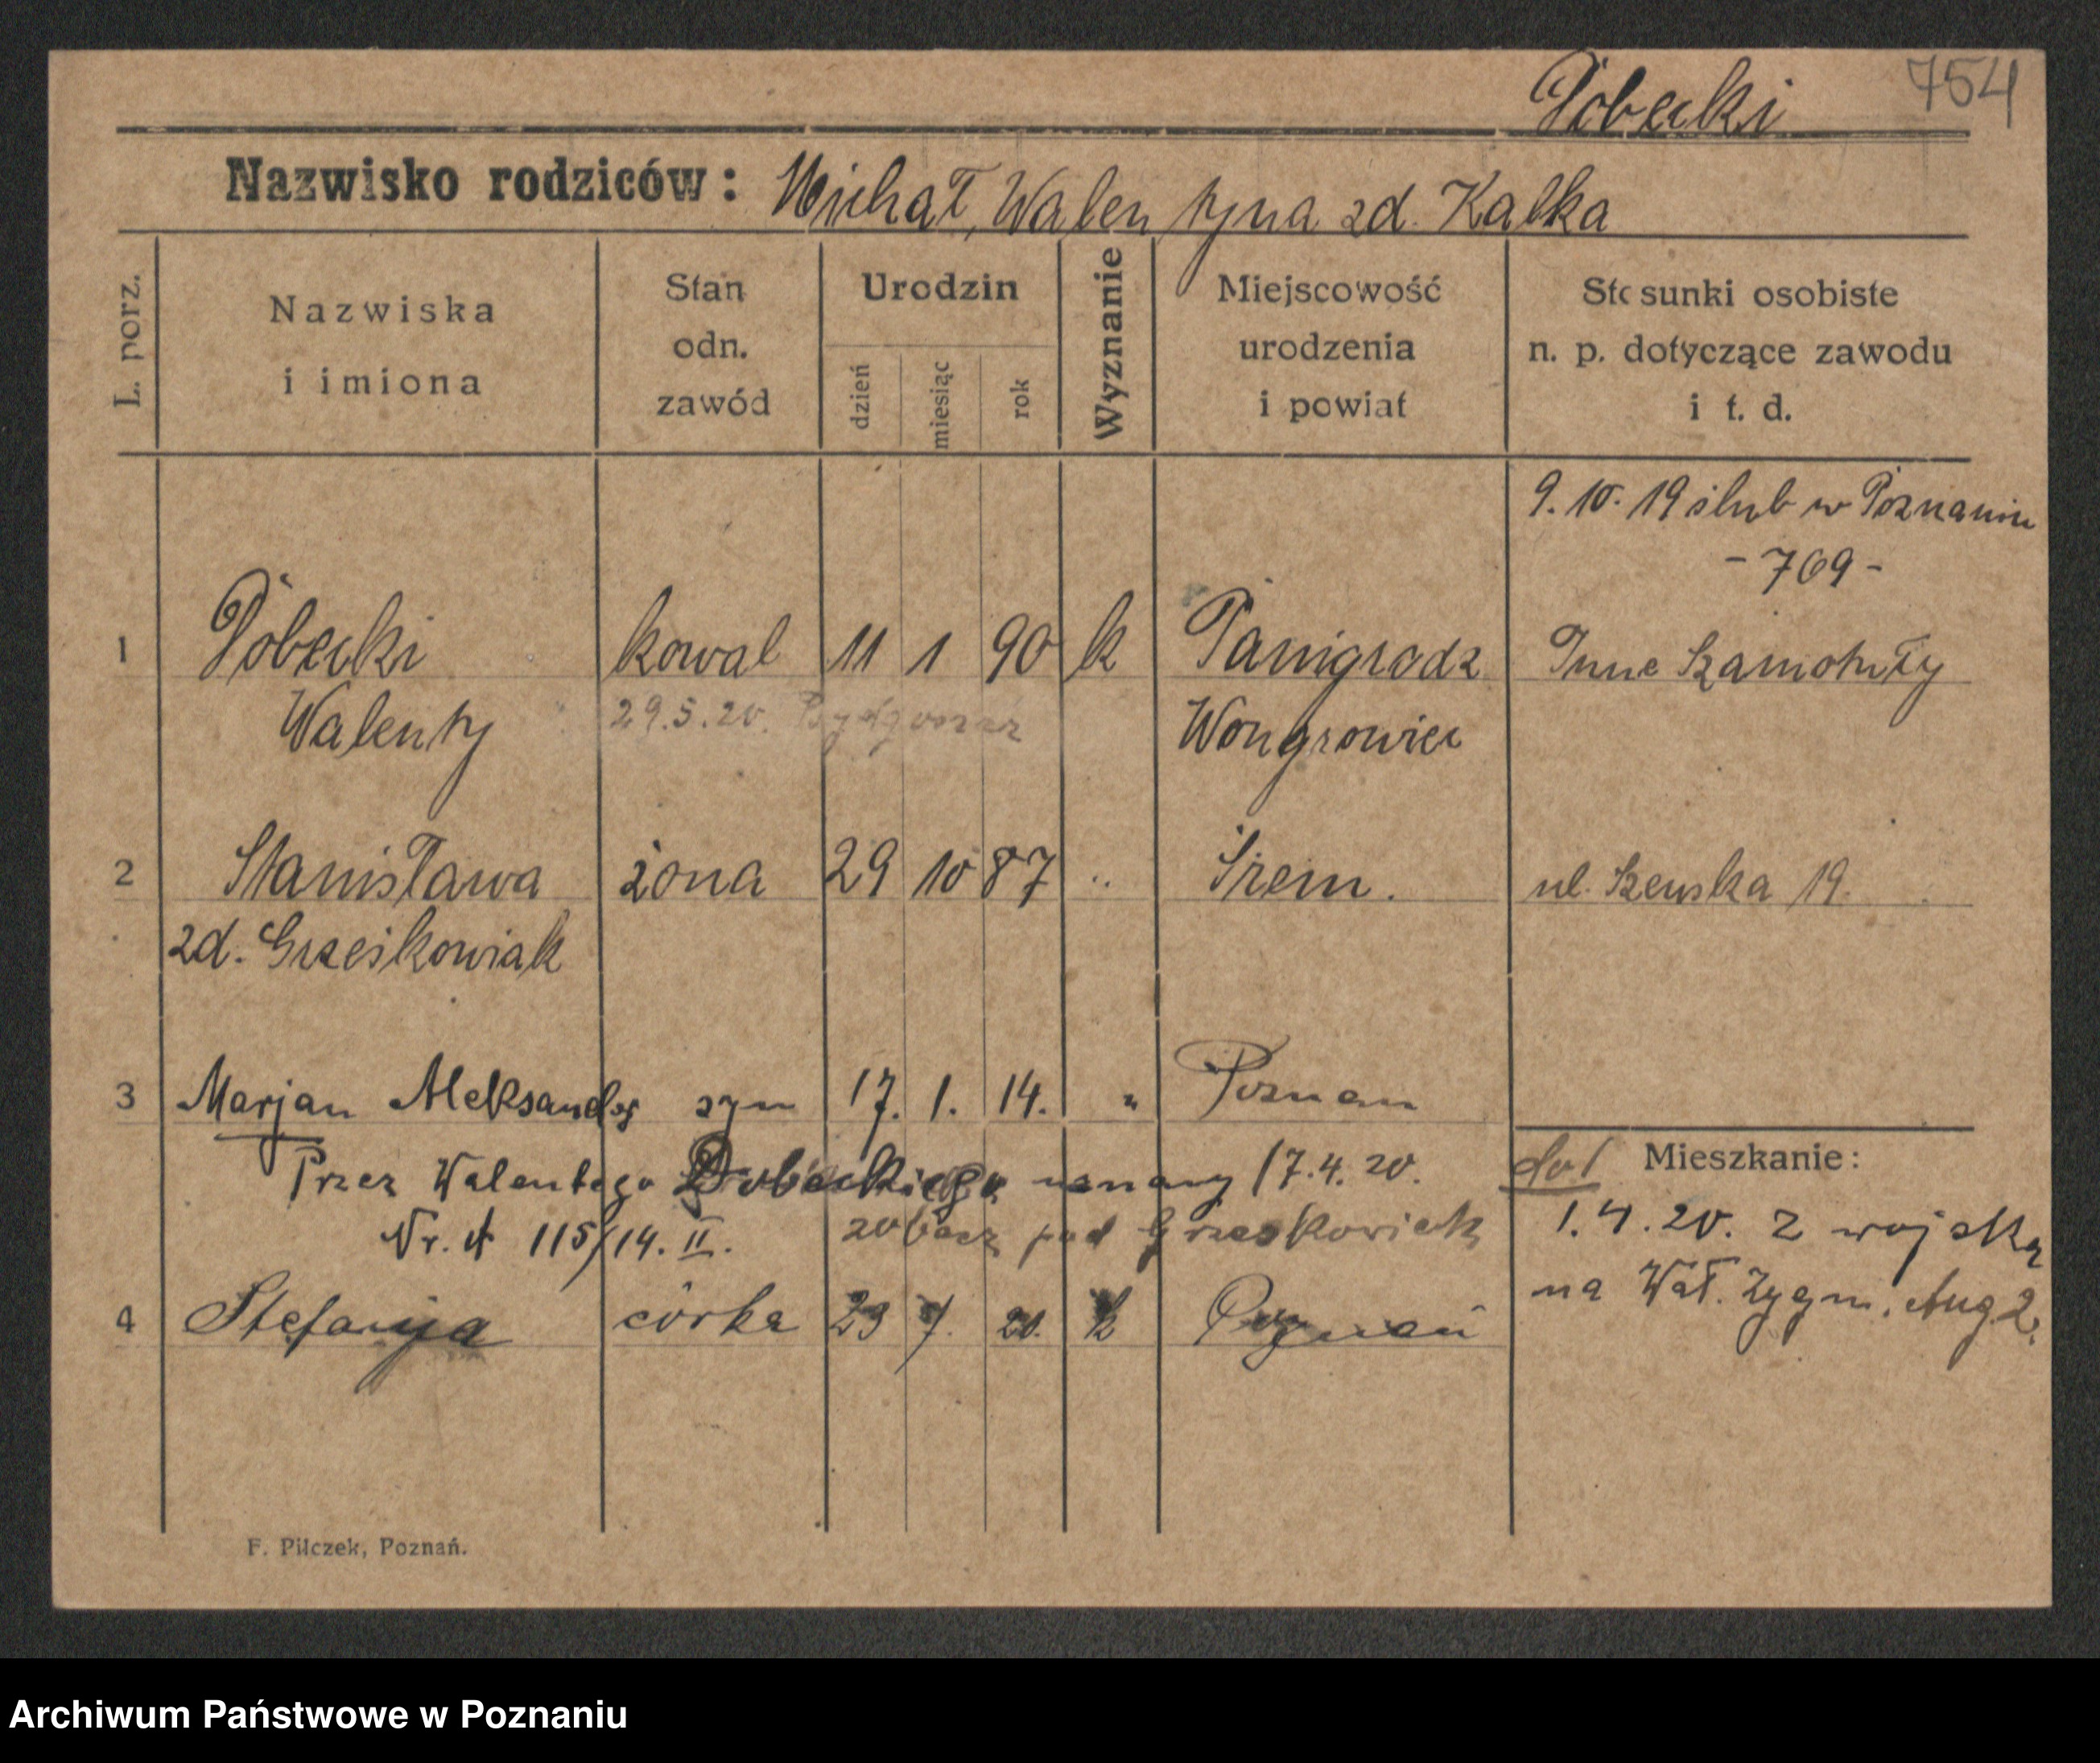 754
Dobecki
Nazwisko rodziców: Michał, Walentyna zd. Kalka
L. porz.
Nazwiska i imiona
Stan odn. zawód
Urodzin
dzień miesiąc rok
Wyznanie
Miejscowość urodzenia i powiat
Stosunki osobiste n. p. dotyczące zawodu i t. d.
9. 10. 19 ślub w Poznaniu
- 769 -
1 Dobecki kowal 11 1 90 k Panigrodz Szamotuły
Walenty 29.5.20. Bydgoszcz Wongrowiec
2 Stanisława żona 29 10 87 .. Śrem. ul. Szewska 19.
zd. Grześkowiak
3 Marjan Aleksander syn 17. 1. 14. " Poznan
Przez Walentego Dobeckiego uznany 17.4.20.
Nr. A 115/14. II. zobacz pod Grześkowiak
Mieszkanie:
1.4.20. z wojska
na Wał. Zygm. Aug. 2.
4 Stefanja córka 23 7. 20. k Poznań
F. Pilczek, Poznań.
Archiwum Państwowe w Poznaniu